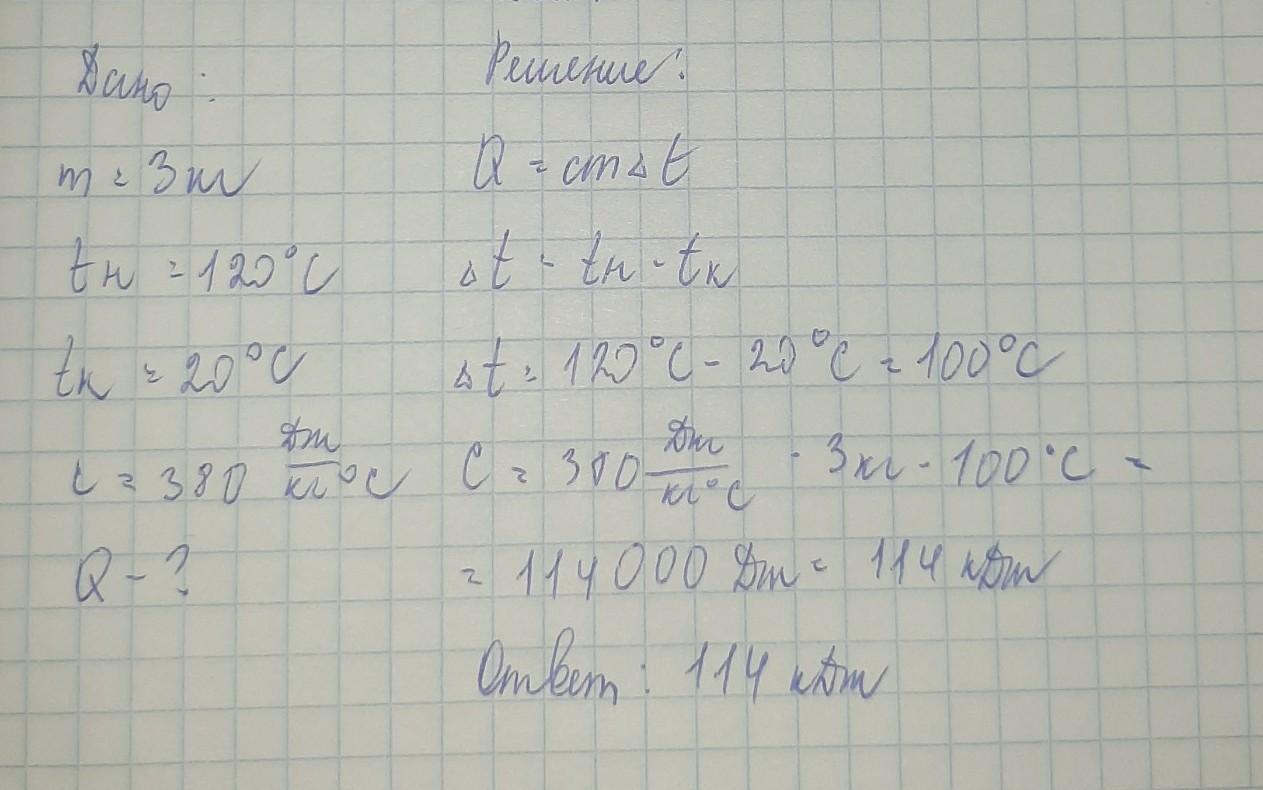 Дано:
m = 3 кг
tн = 120°C
tк = 20°C
c = 380 Дж/кг°C
Q - ?
Решение:
Q = cm△t
△t = tн - tк
△t = 120°C - 20°C = 100°C
C = 380 Дж/кг°C · 3 кг · 100°C =
= 114000 Дж = 114 кДж
Ответ: 114 кДж